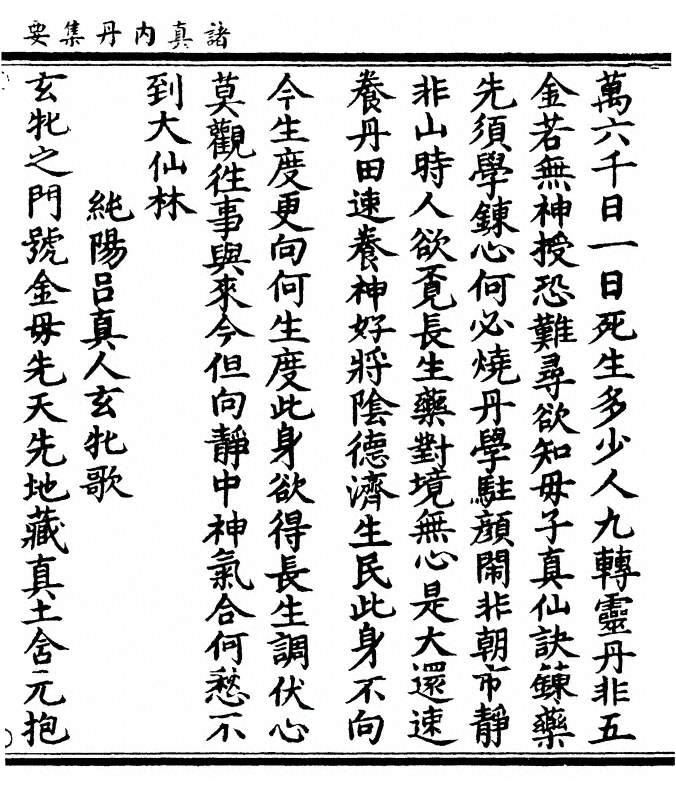 諸真內丹集要
萬六千日一日死生多少人九轉靈丹非五
金若無神授恐難尋欲知毋子真仙訣鍊藥
先須學鍊心何必燒丹學駐顏鬧非朝市靜
非山時人欲覔長生藥對境無心是大還速
養丹田速養神好將隂德濟生民此身不向
今生度更向何生度此身欲得長生調伏心
莫觀徃事與來今但向靜中神氣合何愁不
到大仙林
純陽呂真人玄牝歌
玄牝之門號金毋先天先地藏真土含元抱